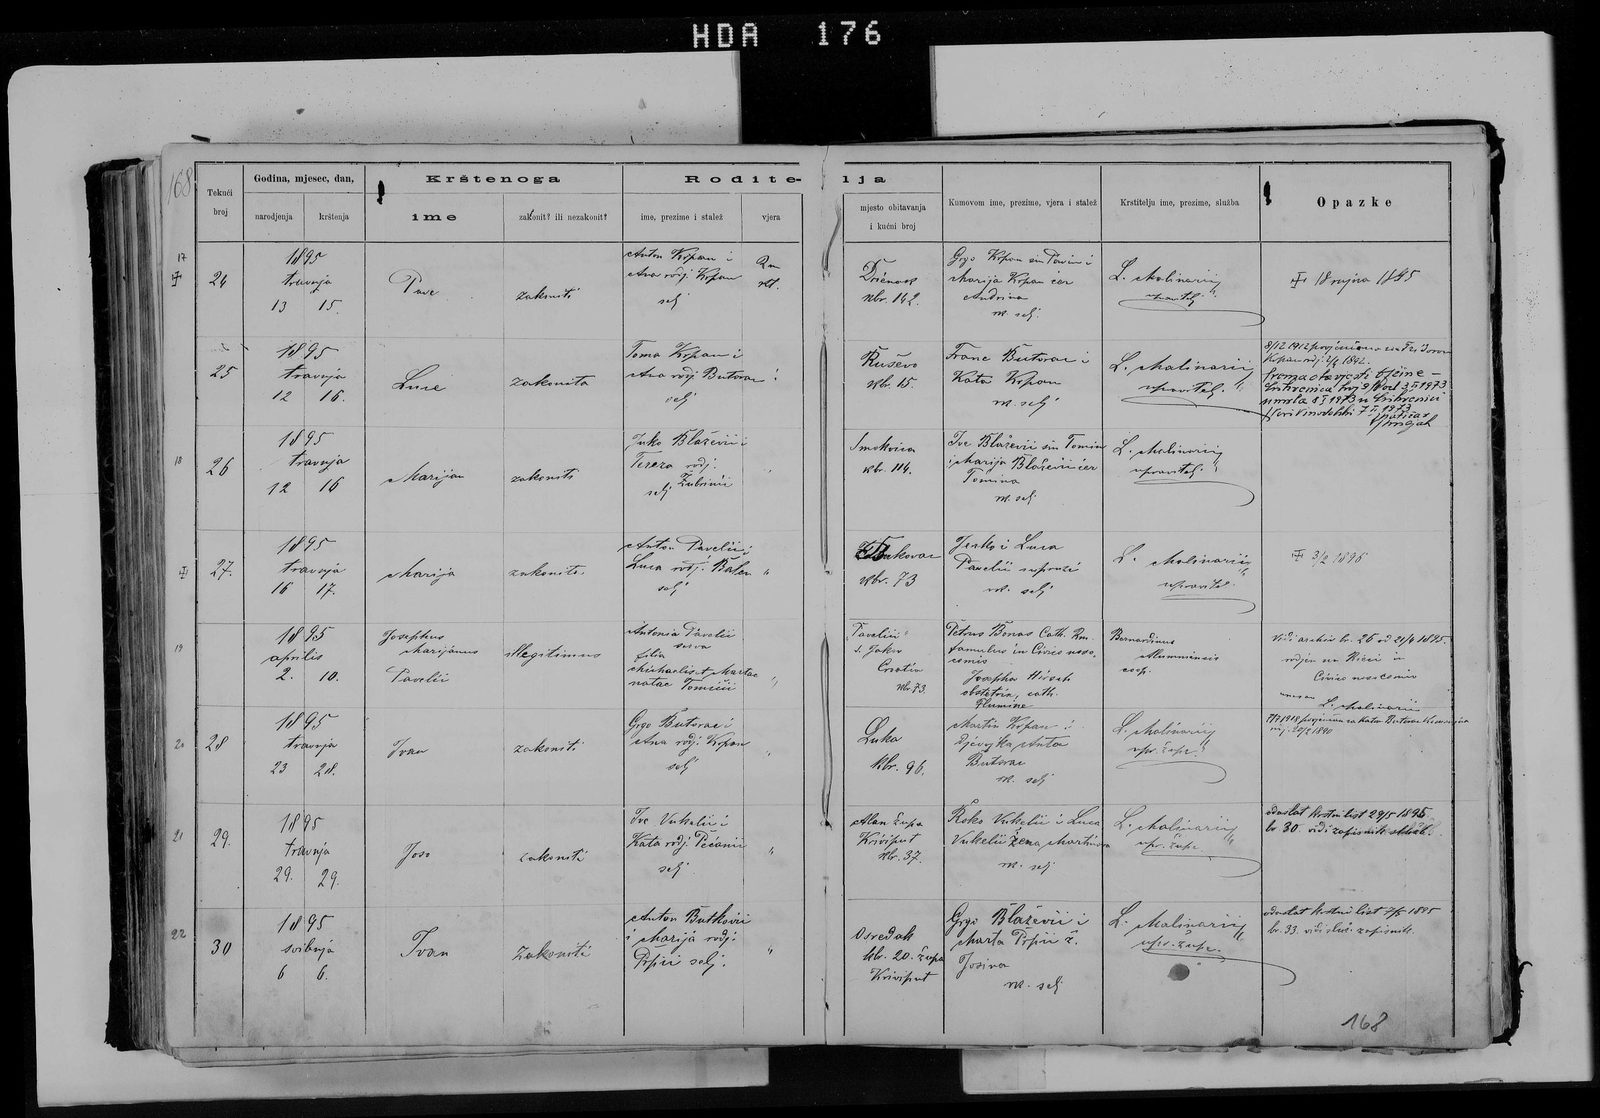 HDA 176
168
Tekući broj
Godina, mjesec, dan,
narodjenja
krštenja
Krštenoga
ime
zakonit? ili nezakonit?
Rodite-
lja
ime, prezime i stalež
vjera
mjesto obitavanja
i kućni broj
Kumovom ime, prezime, vjera i stalež
Krstitelju ime, prezime, služba
Opazke
17
24
1895
travnja
13 15.
Pave
zakoniti
Anton Krpan i
Ana rodj. Krpan
selj
Rm
kt.
kbr. 142.
Grgo Krpan sin Pavin i
Marija Krpan ćer
Andrina
rk. selj.
L. Molinarij
upravitelj
18 rujna 1895
25
1895
travnja
12 16.
Luce
zakonita
Toma Krpan i
Ana rodj. Butorac
selj
Ruševo
kbr. 15.
Frane Butorac i
Kata Krpan
rk. selj
L. Molinarij
upravitelj
8/12 1912
Krpan rodj.
umrla 8 I 1973 u
7 I 1973
18
26
1895
travnja
12 16
Marijan
zakoniti
Juko Blažević i
Tereza rodj.
Zubrinić
selj
Smokvica
kbr. 114.
Ive Blažević sin Tomin
i Marija Blažević ćer
Tomina
rk. selj
L. Molinarij
upravitelj
27.
1895
travnja
16 17.
Marija
zakonita
Anton Pavelić i
Luca rodj.
selj
"
kbr. 73
Jerko i Luca
Pavelić supruzi
rk. selj
L. Molinarij
upravitelj
3/2 1896
19
1895
aprilis
2. 10.
Josephus
Marijanus
Pavelić
illegitimus
Antonia Pavelić
serva
filia
Michaelis et Martae
natae Tomičić
"
Pavelić
s. Jakov
Croatia
kbr. 73.
Petrus Bonas Cath. Rm.
famulus in Civico noso
comio
Josepha Hirsch
obstetrix, cath.
Flumine
Bernardinus
coop.
Vidi arhiv br. 26 od 21/4 1895.
rodjen na Rieci u
Civico nosocomio
L. Molinarij
20
28
1895
travnja
23 28.
Ivan
zakoniti
Grgo Butorac i
Ana rodj. Krpan
selj
Luka
kbr. 96.
Martin Krpan i
djevojka Anta
Butorac
rk. selj
L. Molinarij
upr. župe
1918
21
29.
1895
travnja
29. 29.
Joso
zakoniti
Ive Vukelić i
Kata rodj.
selj
"
Alan župa
Krivput
kbr. 37.
Roko Vukelić i Luca
Vukelić žena Martinova
rk. selj
L. Molinarij
upr. župe
odaslat krstni list 29/5 1895
br. 30. vidi zapisnik
22
30
1895
svibnja
6 6.
Ivan
zakoniti
Anton Butković
i Marija rodj.
Prpić selj.
"
Osredak
kbr. 20. župa
Krivput
Grgo Blažević i
Marta Prpić ž.
Josina
rk. selj
L. Molinarij
upr. župe
odaslat krstni list 7/5 1895
br. 33. vidi zapisnik.
168